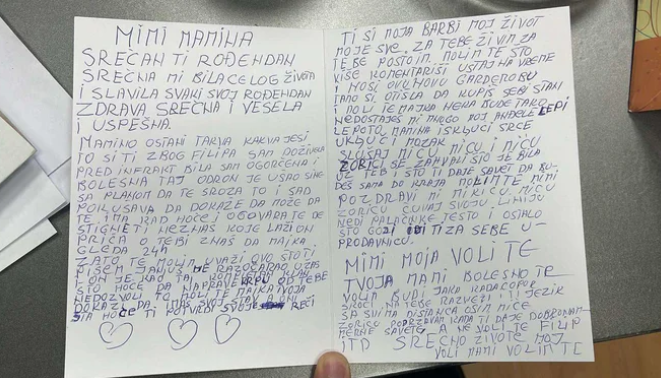 MIMI MAMINA
SREĆAN TI ROĐENDAN
SREĆNA MI BILA CELOG ŽIVOTA
I SLAVILA SVAKI SVOJ ROĐENDAN
ZDRAVA SREĆNA I VESELA
I USPEŠNA.
MAMINO OSTANI TAKVA KAKVA JESI
TO SI TI ZBOG FILIPA SAM DOŽIVELA
PRED INFRAKT BILA SAM OGORČENA I
BOLESNA TAJ ODRON JE UŠAO SINE
SA PLANOM DA TE SROZA TO I SAD
POKUŠAVA DA DOKAŽE DA MOŽE DA
TE IMA KAD HOĆE I OGOVARA TE DE
STIGNE TI NEZNAŠ KOJE LAŽI ON
PRIČA O TEBI ZNAŠ DA MAJKA
GLEDA 24h
ZATO TE MOLIM UVAŽI OVO ŠTO TI
PIŠEM JANJUŠ ME RAZOČARAO UŽAS
I ON JE KAO TAJ
STA HOĆE DA NAPRAVE KRPU OD TEBE
NEDOZVOLI TO MOLI TE MAJKA TVOJA
DOKAŽ DA IMAŠ SVOJ STAV
ŠTA HOĆE TI POTVRDI SVOJE REČI
TI SI MOJA BARBI MOJ ŽIVOT
MOJE SVE, ZA TEBE ŽIVIM ZA
TEBE POSTOIM. MOLIM TE ŠTO
VIŠE KOMENTARIŠI USTAJ NA VREME
I NOSI OVU NOVU GARDEROBU
TAMO SI OTIŠLA DA KUPIŠ SEBI STAN
I POLU JE MAJNA NEKA BUDE TAKO
NEDOSTAJEŠ MI MNOGO MOJ ANĐELE LEPI
LEPOTO MAMINA ISKLJUČI SRCE
UKLJUČI MOZAK
SLUŠAJ MICU MICU I MICU
ZORICI SE ZAHVALI ŠTO JE BILA
UZ TEB I ŠTO TI DAJE SAVET DA BU-
DEŠ SAMA DO KRAJA MOLIM TE MIMI
POZDRAVI MI MIKI CU MICU
ZORICU ČUVAJ SVOJU LINIJU
NEDI PALAČINKE TESTO I OSTALO
ŠTO GOD TI ZA SEBE U-
PRODAVNICU.
MIMI MOJA VOLI TE
TVOJA MAMI BOLESNO TE
VOLIM BUDI JAKA KADA
SKOČI NA TEBE RAZVEŽI TI JEZIK
SA SVIMA DISTANCA OSIM MICE
ZORICE PODRŽAVAM KADA TI DAJE DOBRONAM-
MERNE SAVETE A NE VOLI TE FILIP
ITD SREĆNO ŽIVOTE MOJ
VOLI MAMI VOLIM TE